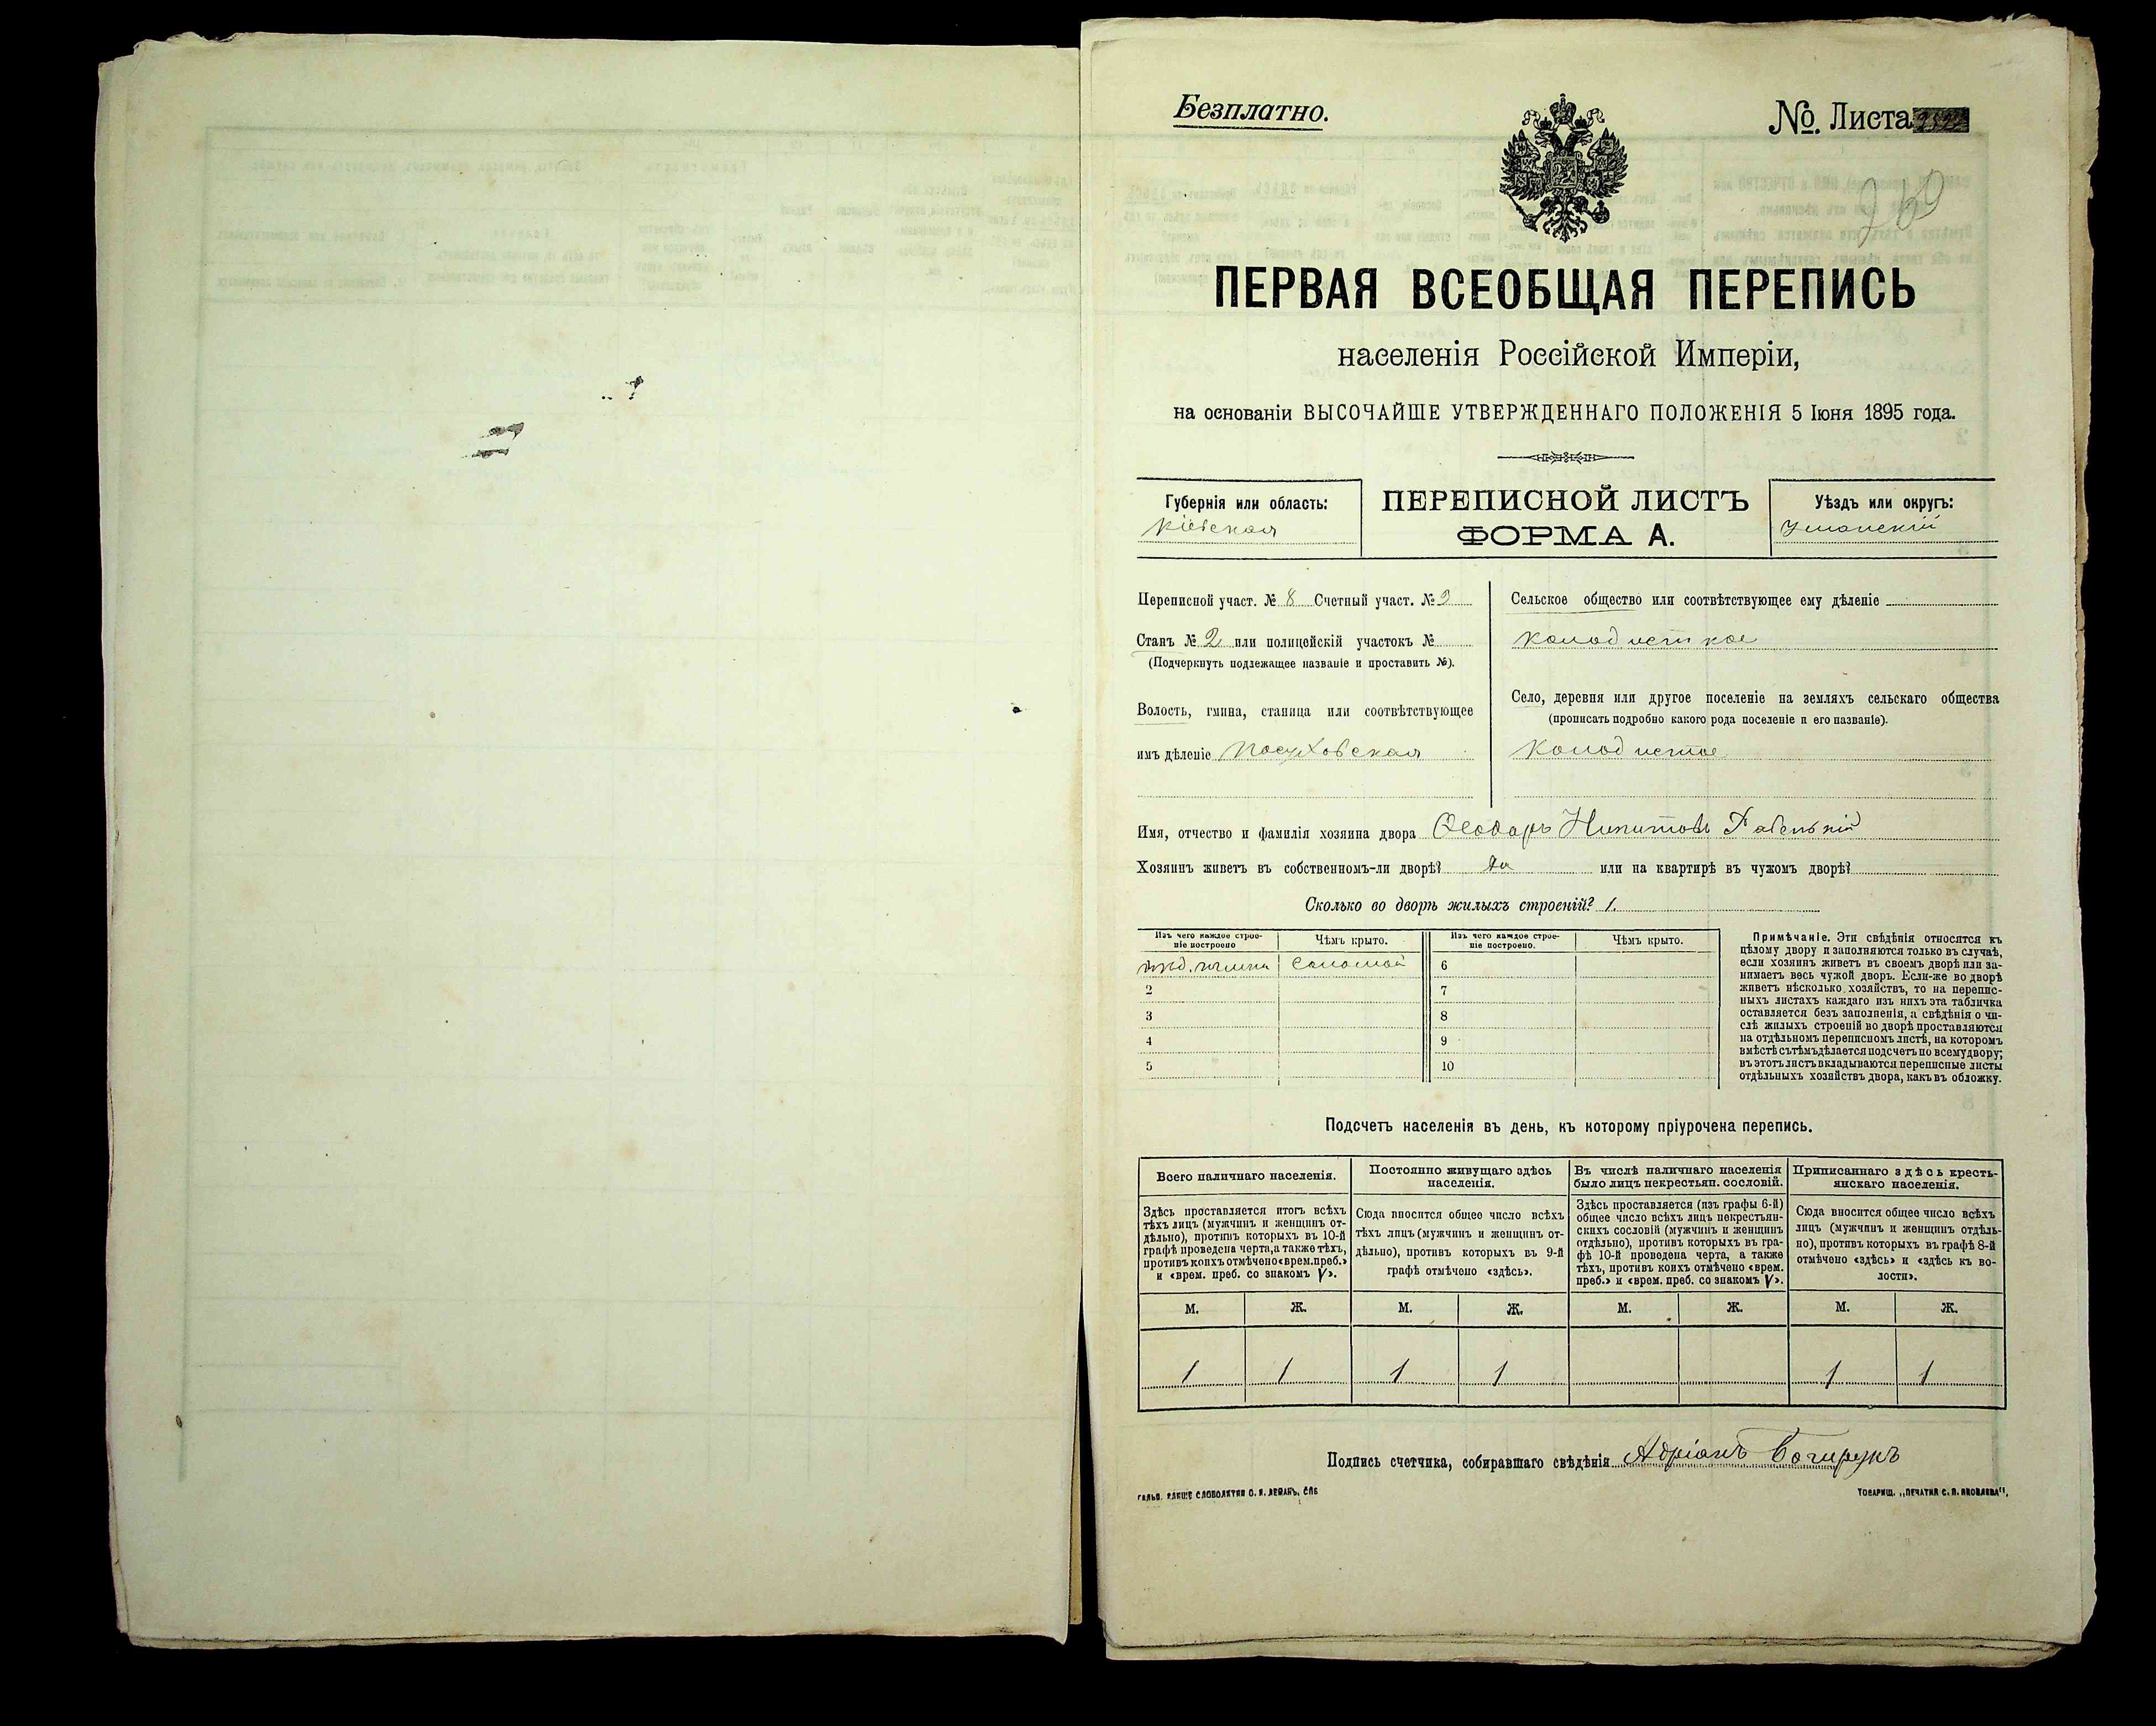 Безплатно.
№. Листа
269
ПЕРВАЯ ВСЕОБЩАЯ ПЕРЕПИСЬ
населенія Россійской Имперіи,
на основаніи ВЫСОЧАЙШЕ УТВЕРЖДЕННАГО ПОЛОЖЕНІЯ 5 Іюня 1895 года.
Губернія или область:
Кіевская
ПЕРЕПИСНОЙ ЛИСТЪ
ФОРМА А.
Уѣздъ или округъ:
Уманскій
Переписной участ. № 8 Счетный участ. № 9
Станъ № 2 или полицейскій участокъ №
(Подчеркнуть подлежащее названіе и проставить №).
Волость, гмина, станица или соотвѣтствующее
имъ дѣленіе Посуховская
Сельское общество или соотвѣтствующее ему дѣленіе
Колодисткое
Село, деревня или другое поселеніе на земляхъ сельскаго общества
(прописать подробно какого рода поселеніе и его названіе).
Колодистое
Имя, отчество и фамилія хозяина двора Ѳеодоръ Никитовъ
Хозяинъ живетъ въ собственномъ-ли дворѣ? да или на квартирѣ въ чужомъ дворѣ?
Сколько во дворѣ жилыхъ строеній? 1.
Изъ чего каждое строе-
ніе построено
Чѣмъ крыто.
Изъ чего каждое строе-
ніе построено.
Чѣмъ крыто.
соломой 6
2 7
3 8
4 9
5 10
Примѣчаніе. Эти свѣдѣнія относятся къ
цѣлому двору и заполняются только въ случаѣ,
если хозяинъ живетъ въ своемъ дворѣ или за-
нимаетъ весь чужой дворъ. Если-же во дворѣ
живетъ нѣсколько хозяйствъ, то на перепис-
ныхъ листахъ каждаго изъ нихъ эта табличка
оставляется безъ заполненія, а свѣдѣнія о чи-
слѣ жилыхъ строеній во дворѣ проставляются
на отдѣльномъ переписномъ листѣ, на которомъ
вмѣстѣ съ тѣмъ дѣлается подсчетъ по всему двору;
въ этотъ листъ вкладываются переписные листы
отдѣльныхъ хозяйствъ двора, какъ въ обложку.
Подсчетъ населенія въ день, къ которому пріурочена перепись.
Всего наличнаго населенія.
Постоянно живущаго здѣсь
населенія.
Въ числѣ наличнаго населенія
было лицъ некрестьян. сословій.
Приписаннаго здѣсь кресть-
янскаго населенія.
Здѣсь проставляется итогъ всѣхъ
тѣхъ лицъ (мужчинъ и женщинъ от-
дѣльно), противъ которыхъ въ 10-й
графѣ проведена черта, а также тѣхъ,
противъ коихъ отмѣчено «врем. преб.»
и «врем. преб. со знакомъ V».
Сюда вносится общее число всѣхъ
тѣхъ лицъ (мужчинъ и женщинъ от-
дѣльно), противъ которыхъ въ 9-й
графѣ отмѣчено «здѣсь».
Здѣсь проставляется (изъ графы 6-й)
общее число всѣхъ лицъ некрестьян-
скихъ сословій (мужчинъ и женщинъ
отдѣльно), противъ которыхъ въ гра-
фѣ 10-й проведена черта, а также
тѣхъ, противъ коихъ отмѣчено «врем.
преб.» и «врем. преб. со знакомъ V».
Сюда вносится общее число всѣхъ
лицъ (мужчинъ и женщинъ отдѣль-
но), противъ которыхъ въ графѣ 8-й
отмѣчено «здѣсь» и «здѣсь къ во-
лости».
М. Ж. М. Ж. М. Ж. М. Ж.
1 1 1 1 1 1
Подпись счетчика, собиравшаго свѣдѣнія Адріанъ
СЛОВОЛИТНЯ О. И. ЛЕМАНЪ, СПБ
ТОВАРИЩ. „ПЕЧАТНЯ С. П. ЯКОВЛЕВА",